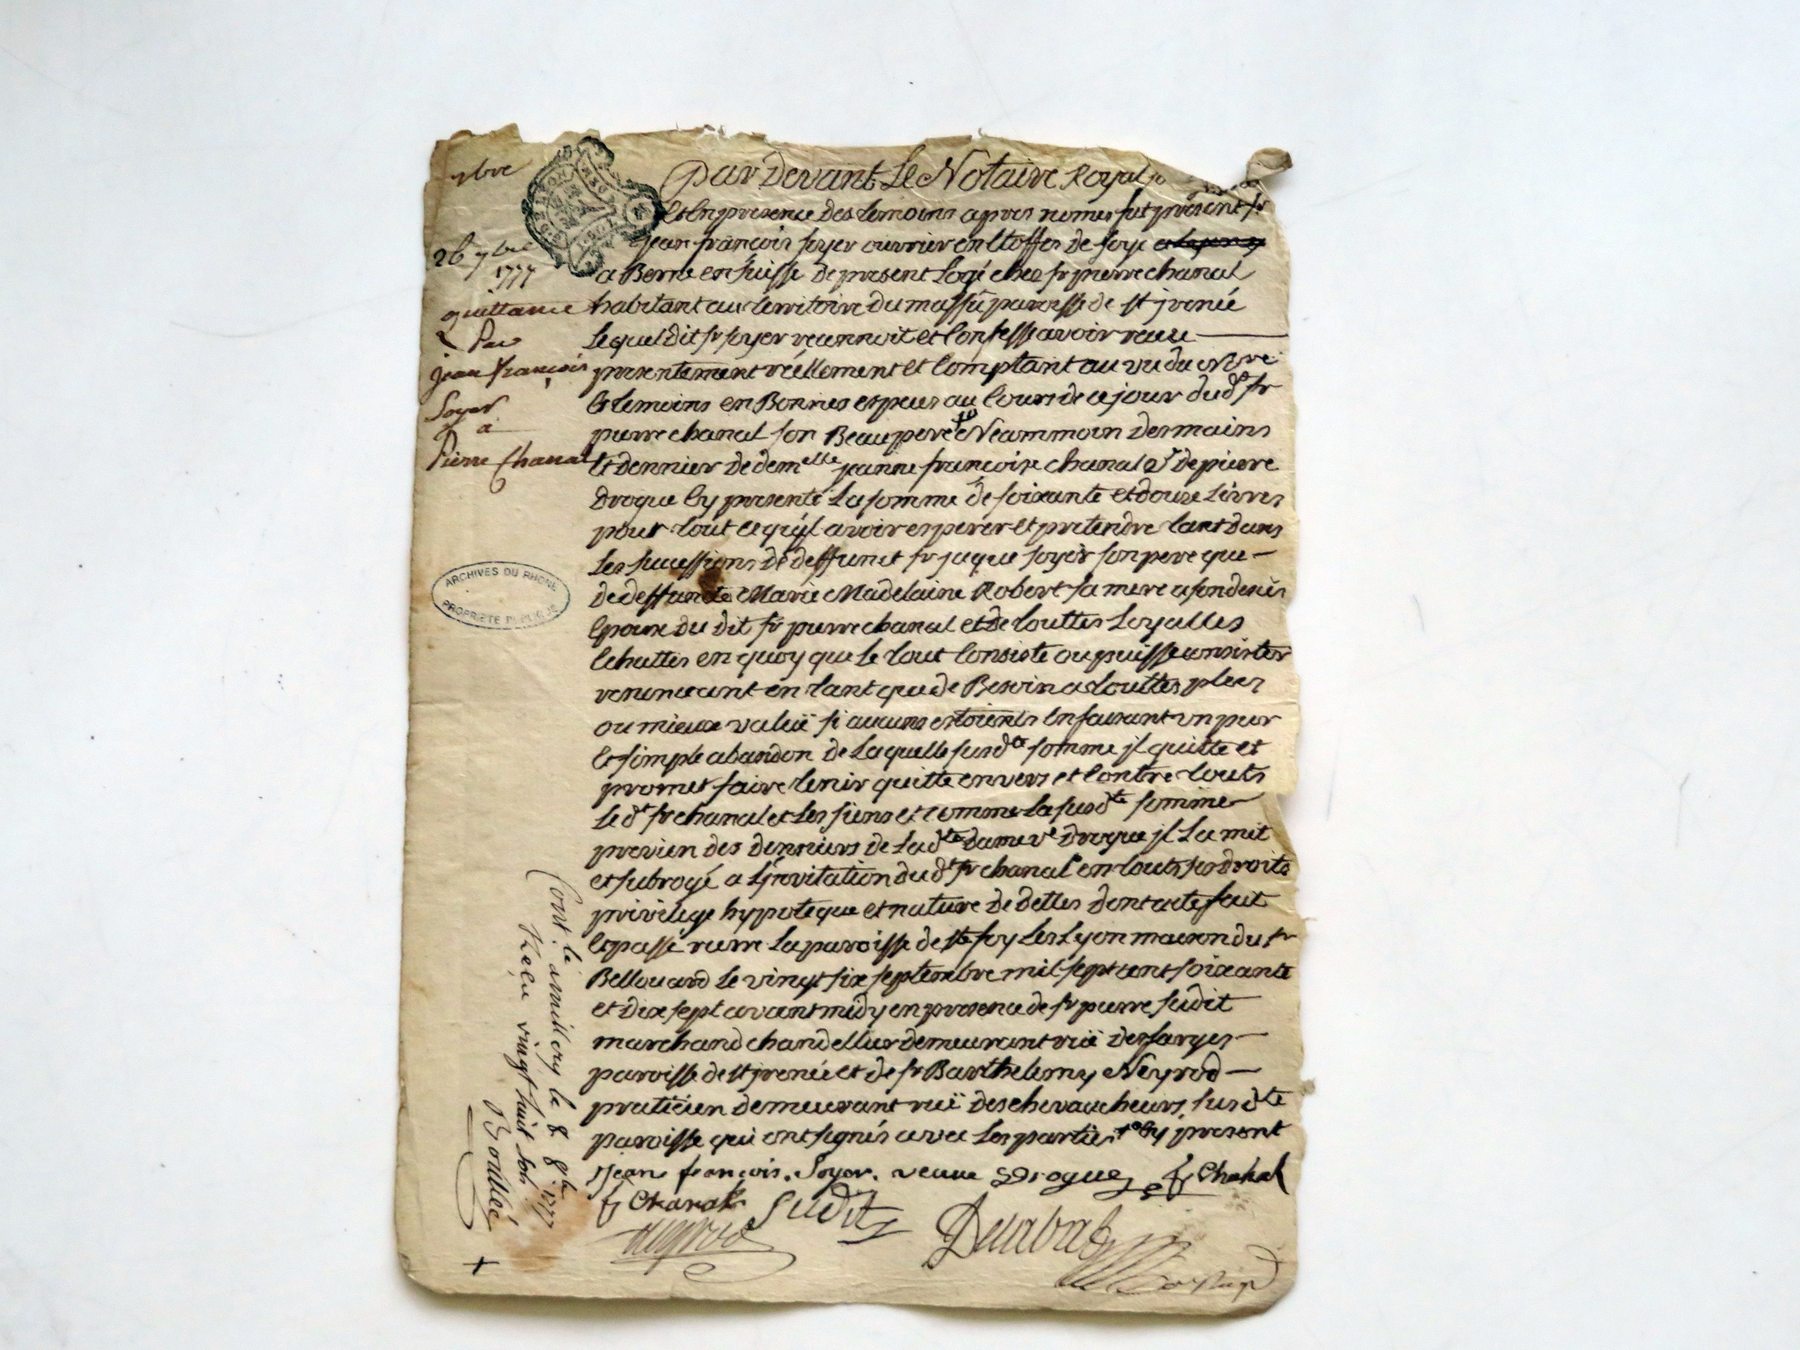 7bre
26 7bre
1777
quittance
Par
jean françois
Soyer
a
Pierre Chanal
par Devant Le Notaire Royal
et En presence des temoins apres nomes fut présent sr
jean françois soyer ouvrier en Etoffes de soye
a Berne en suisse de present Logé ches sr pierre chanal
habitant au territoire du massu paroisse de st jrenée
Lequel Dit sr soyer reconnoit et Confesse avoir receu
presentement réellement et Comptant au vu du Nore
et temoins en Bonnes especes au Cours de ce jour dud. sr
pierre chanal son Beaupere et Neammoin des mains
et dennier de demelle jeanne françoise chanal ve de pierre
Drogue Cy presente La somme de soixante et douze Livres
pour tout ce qu'jl avoir esperer et pretendre tant dans
Les successions de deffunct sr jaque soyer son pere que
de deffuncte Marie Madelaine Robert sa mere a son deces
Epouse du dit sr pierre chanal et de touttes Loyalles
Echuttes en quoy que Le tout Consiste ou puisse consister
renoncant en tant que de Besoin a touttes plus
ou mieux value si aucunes estoients En faisant un pur
et simple abandon de Laquelle susdte somme jl quitte et
promet faire tenir quitte envers et Contre touts
Le dt sr chanal et Les siens et comme La susdte somme
provien des denniers de Ladte Dame ve Drogue jl La mit
et subrogé a L'jnvitation dud. sr chanal en touts ses droits
privilege hypoteque et nature de dettes dont acte fait
et passé riere La paroisse de ste foy Les Lyon maison du sr
Bellouard Le vingt six septembre mil sept cent soixante
et dix sept avant midy en presence de sr pierre sudit
marchand chandellier demeurant ruë des farges
paroisse de st jrenée et de sr Barthelemy Neyrod
praticien demeurant ruë des chevaucheurs, susdte
paroisse qui ont signés avec Les parties Cy present
Jean françois. Soyer. veuve Drogue Chanal
Chanal
Sudit
Neyrod
Delabat
Cont. le a millery le 8 8bre 1777
Reçu vingt huit sols
Boullée
ARCHIVES DU RHONE
PROPRIETE PUBLIQUE